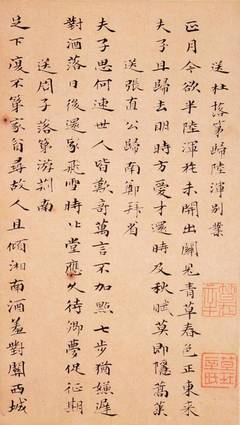 送杜落第歸陸渾別業
正月今欲半陸渾花未開出關見青草春色正東來
夫子且歸去明時方愛才還須及秋賦莫即隱蒿萊
送張直公歸南鄭拜省
夫子思何速世人皆歎奇萬言不加點七步猶嫌遲
對酒落日後還家飛雪時北堂應久待鄉夢促征期
送周子落第遊荊南
足下復不第家貧尋故人且傾湘南酒羞對關西城